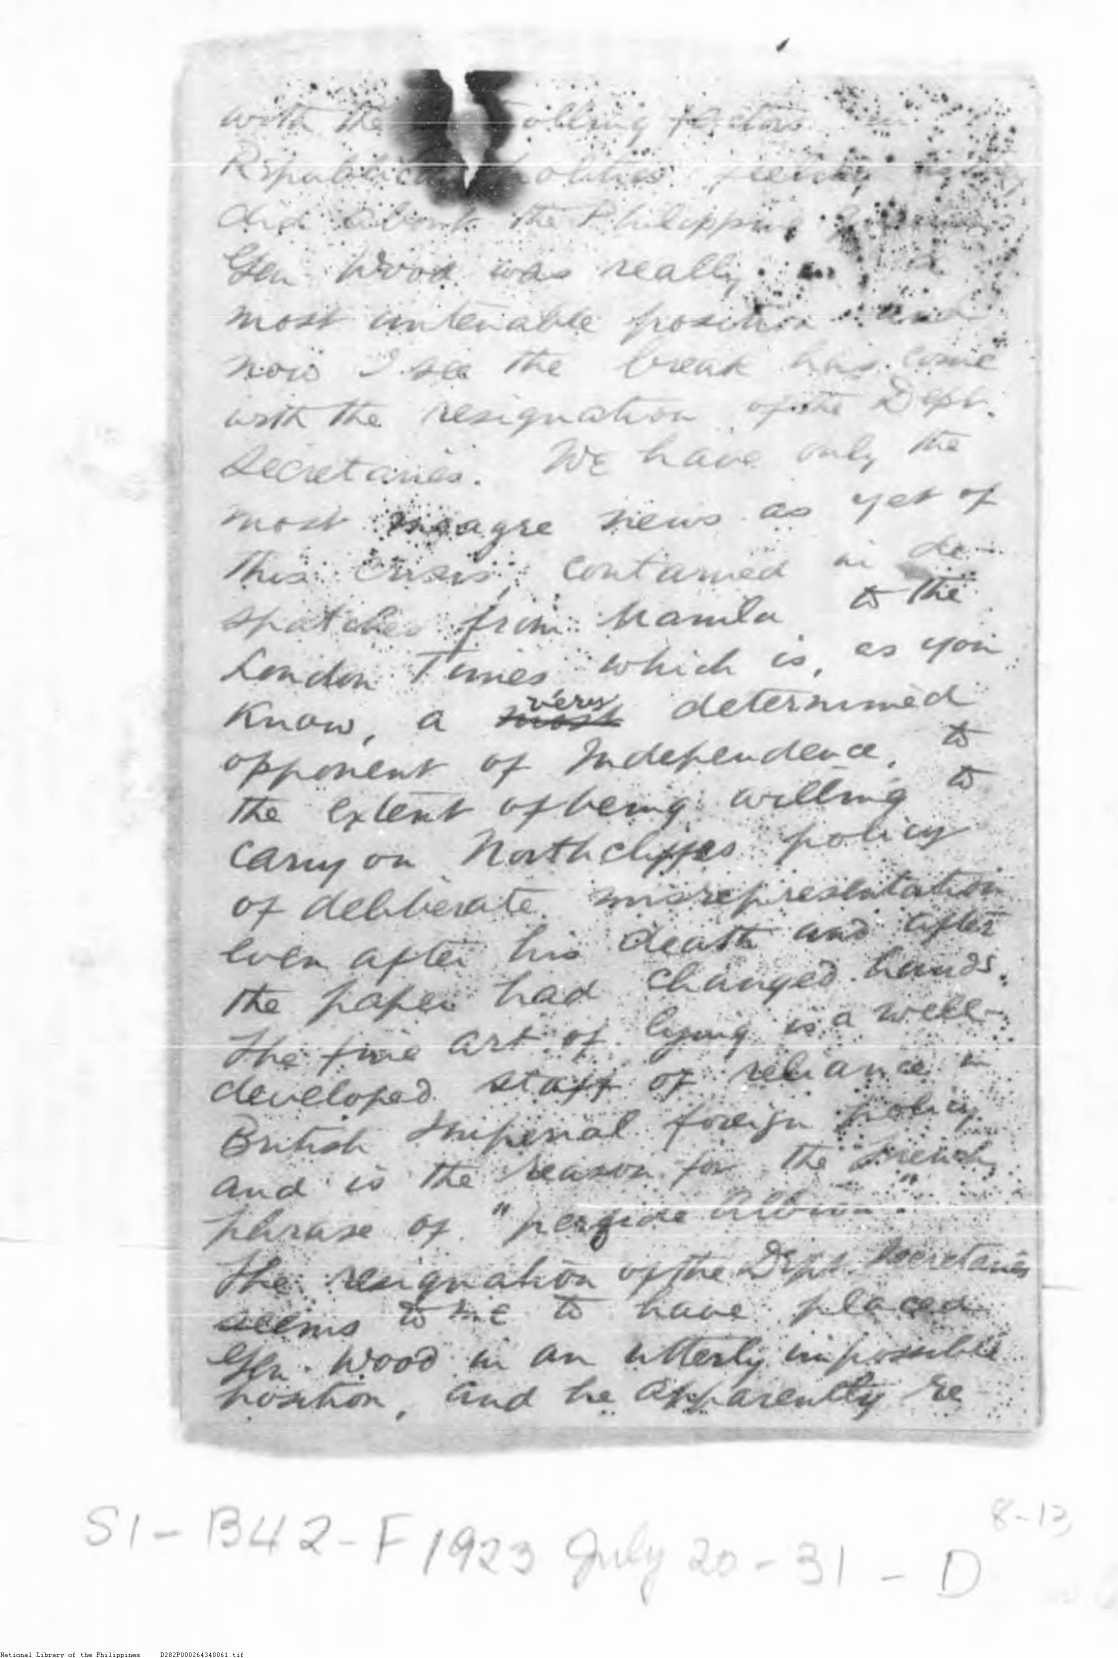 with the         olling factors in
Republican politics feeling as they
did about the Philippine
Gen Wood was really in a
most untenable position and
now I see the break has come
with the resignation of the Dept.
Secretaries. We have only the
most meagre news as yet of
this crisis, contained in de-
spatches from Manila to the
London Times which is, as you
know, a ~~most~~ very determined
opponent of Independence, to
the extent of being willing to
carry on Northcliffes policy
of deliberate misrepresentation
even after his death and after
the paper had changed hands.
The fine art of lying is a well-
developed staff of reliance in
British Imperial foreign policy
and is the reason for the French
phrase of "perfide Albion".
The resignation of the Dept. Secretaries
seems to me to have placed
Gen. Wood in an utterly impossible
position, and he apparently re
S1-B42-F1923 July 20-31-D
8-13
National Library of the Philippines D282P000264340061.tif